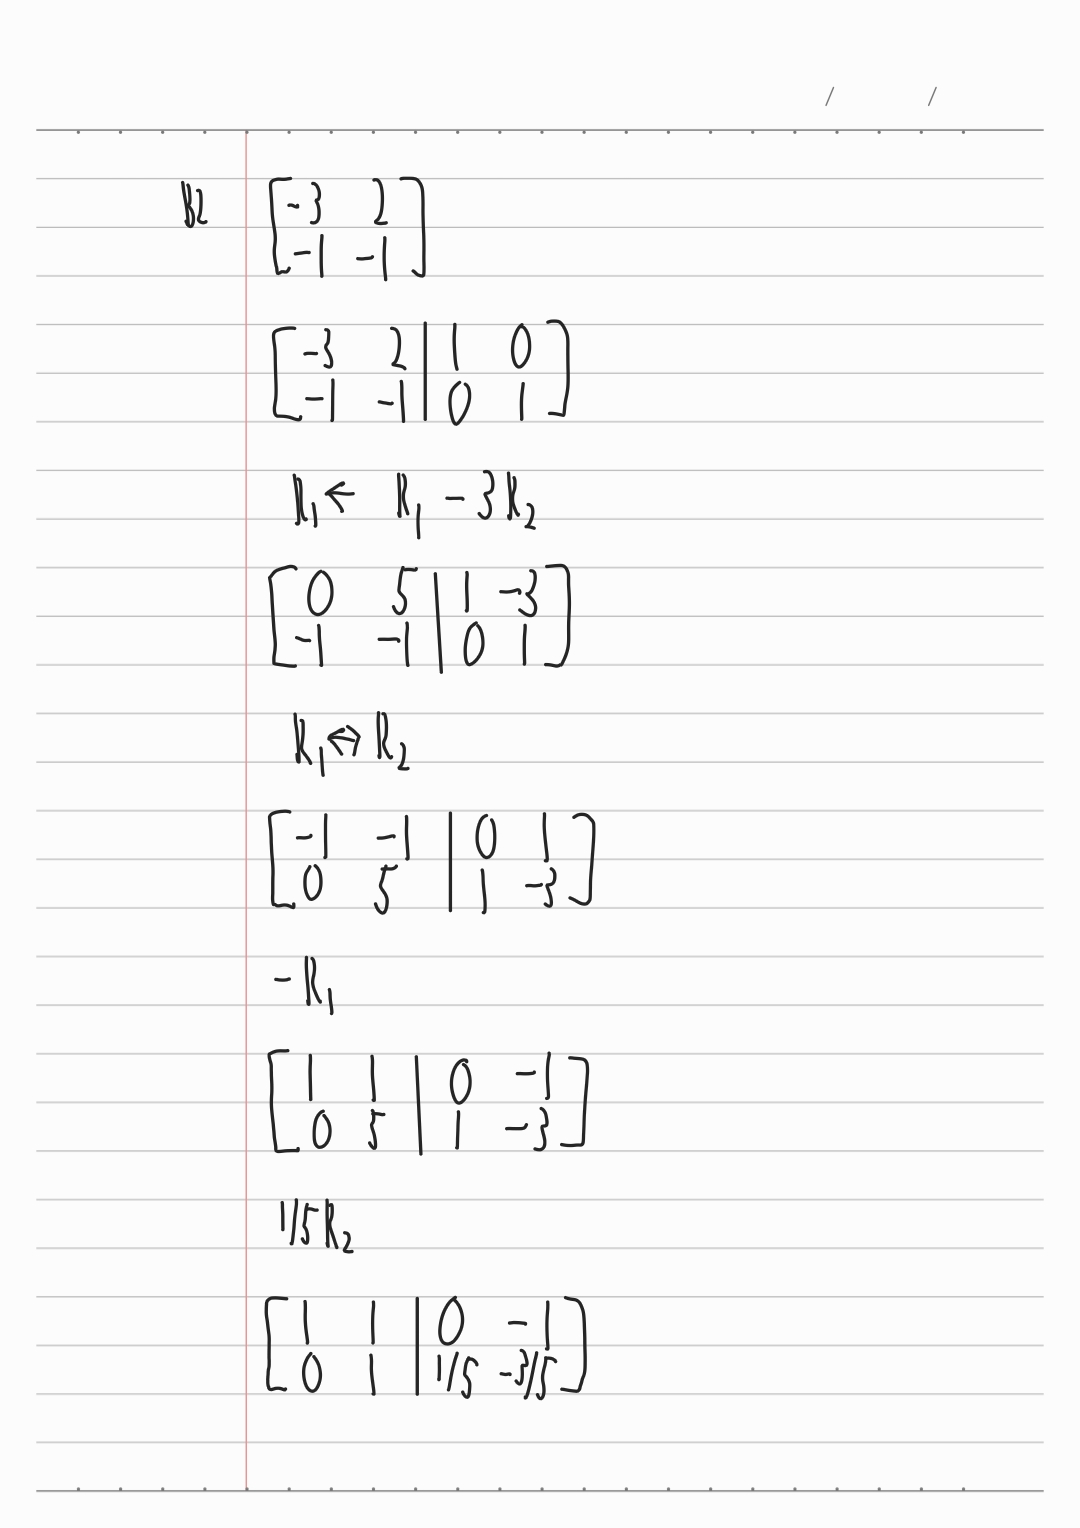 B2
[ -3 2
-1 -1 ]
[ -3 2 | 1 0
-1 -1 | 0 1 ]
R₁ ← R₁ - 3R₂
[ 0 5 | 1 -3
-1 -1 | 0 1 ]
R₁ ↔ R₂
[ -1 -1 | 0 1
0 5 | 1 -3 ]
-R₁
[ 1 1 | 0 -1
0 5 | 1 -3 ]
1/5 R₂
[ 1 1 | 0 -1
0 1 | 1/5 -3/5 ]